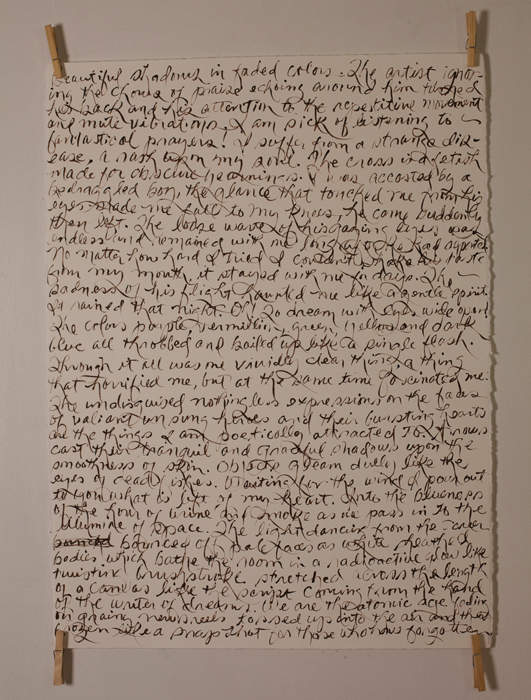 Beautiful shadows in faded colors. The artist ignor-
ing the chorus of praise echoing around him turned
his back and his attention to the repetitive movement
and mute vibrations. I am sick of listening to
fantastical prayers! I suffer from a strange dis-
ease, a rash upon my soul. The cross is a fetish
made for obscure yearnings. I was accosted by a
bedraggled boy, the glance that touched me from his
eyes made me fall to my knees, he came suddenly
then left. The loose wave of his gazing eyes was
endless and remained with me long after he had
No matter how hard I tried I couldn't shake the taste
from my mouth, it stayed with me for days. The
sadness of his flight haunted me like a gentle spirit.
It rained that night. Oh! To dream with eyes wide open!
The colors purple, vermillion, green, yellow and dark
blue all throbbed and boiled up like a single flash.
Through it all was one vividly clear thing, a thing
that horrified me, but at the same time fascinated me.
The undisguised nothingless expressions on the faces
of valiant unsung heroes and their bursting hearts
are the things I am poetically attracted to. Arrows
cast their tranquil and graceful shadows upon the
smoothness of skin. Objects gleam dully like the
eyes of dead fishes. Waiting for the wind I pour out
to you what is left of my heart. Into the blueness
of the hour of wine and smoke as we pass in to the
volume of space. The light dancing from the
bounced off pale faces as white, sheathed
bodies which bathe the room in a radioactive glow like
twisting brushstroke stretched across the length
of a canvas like the sunset coming from the hand
of the writer of dreams. We are the atomic age fading
in grainy newsreels tossed up into the air and then
frozen like a snapshot for those who have forgotten